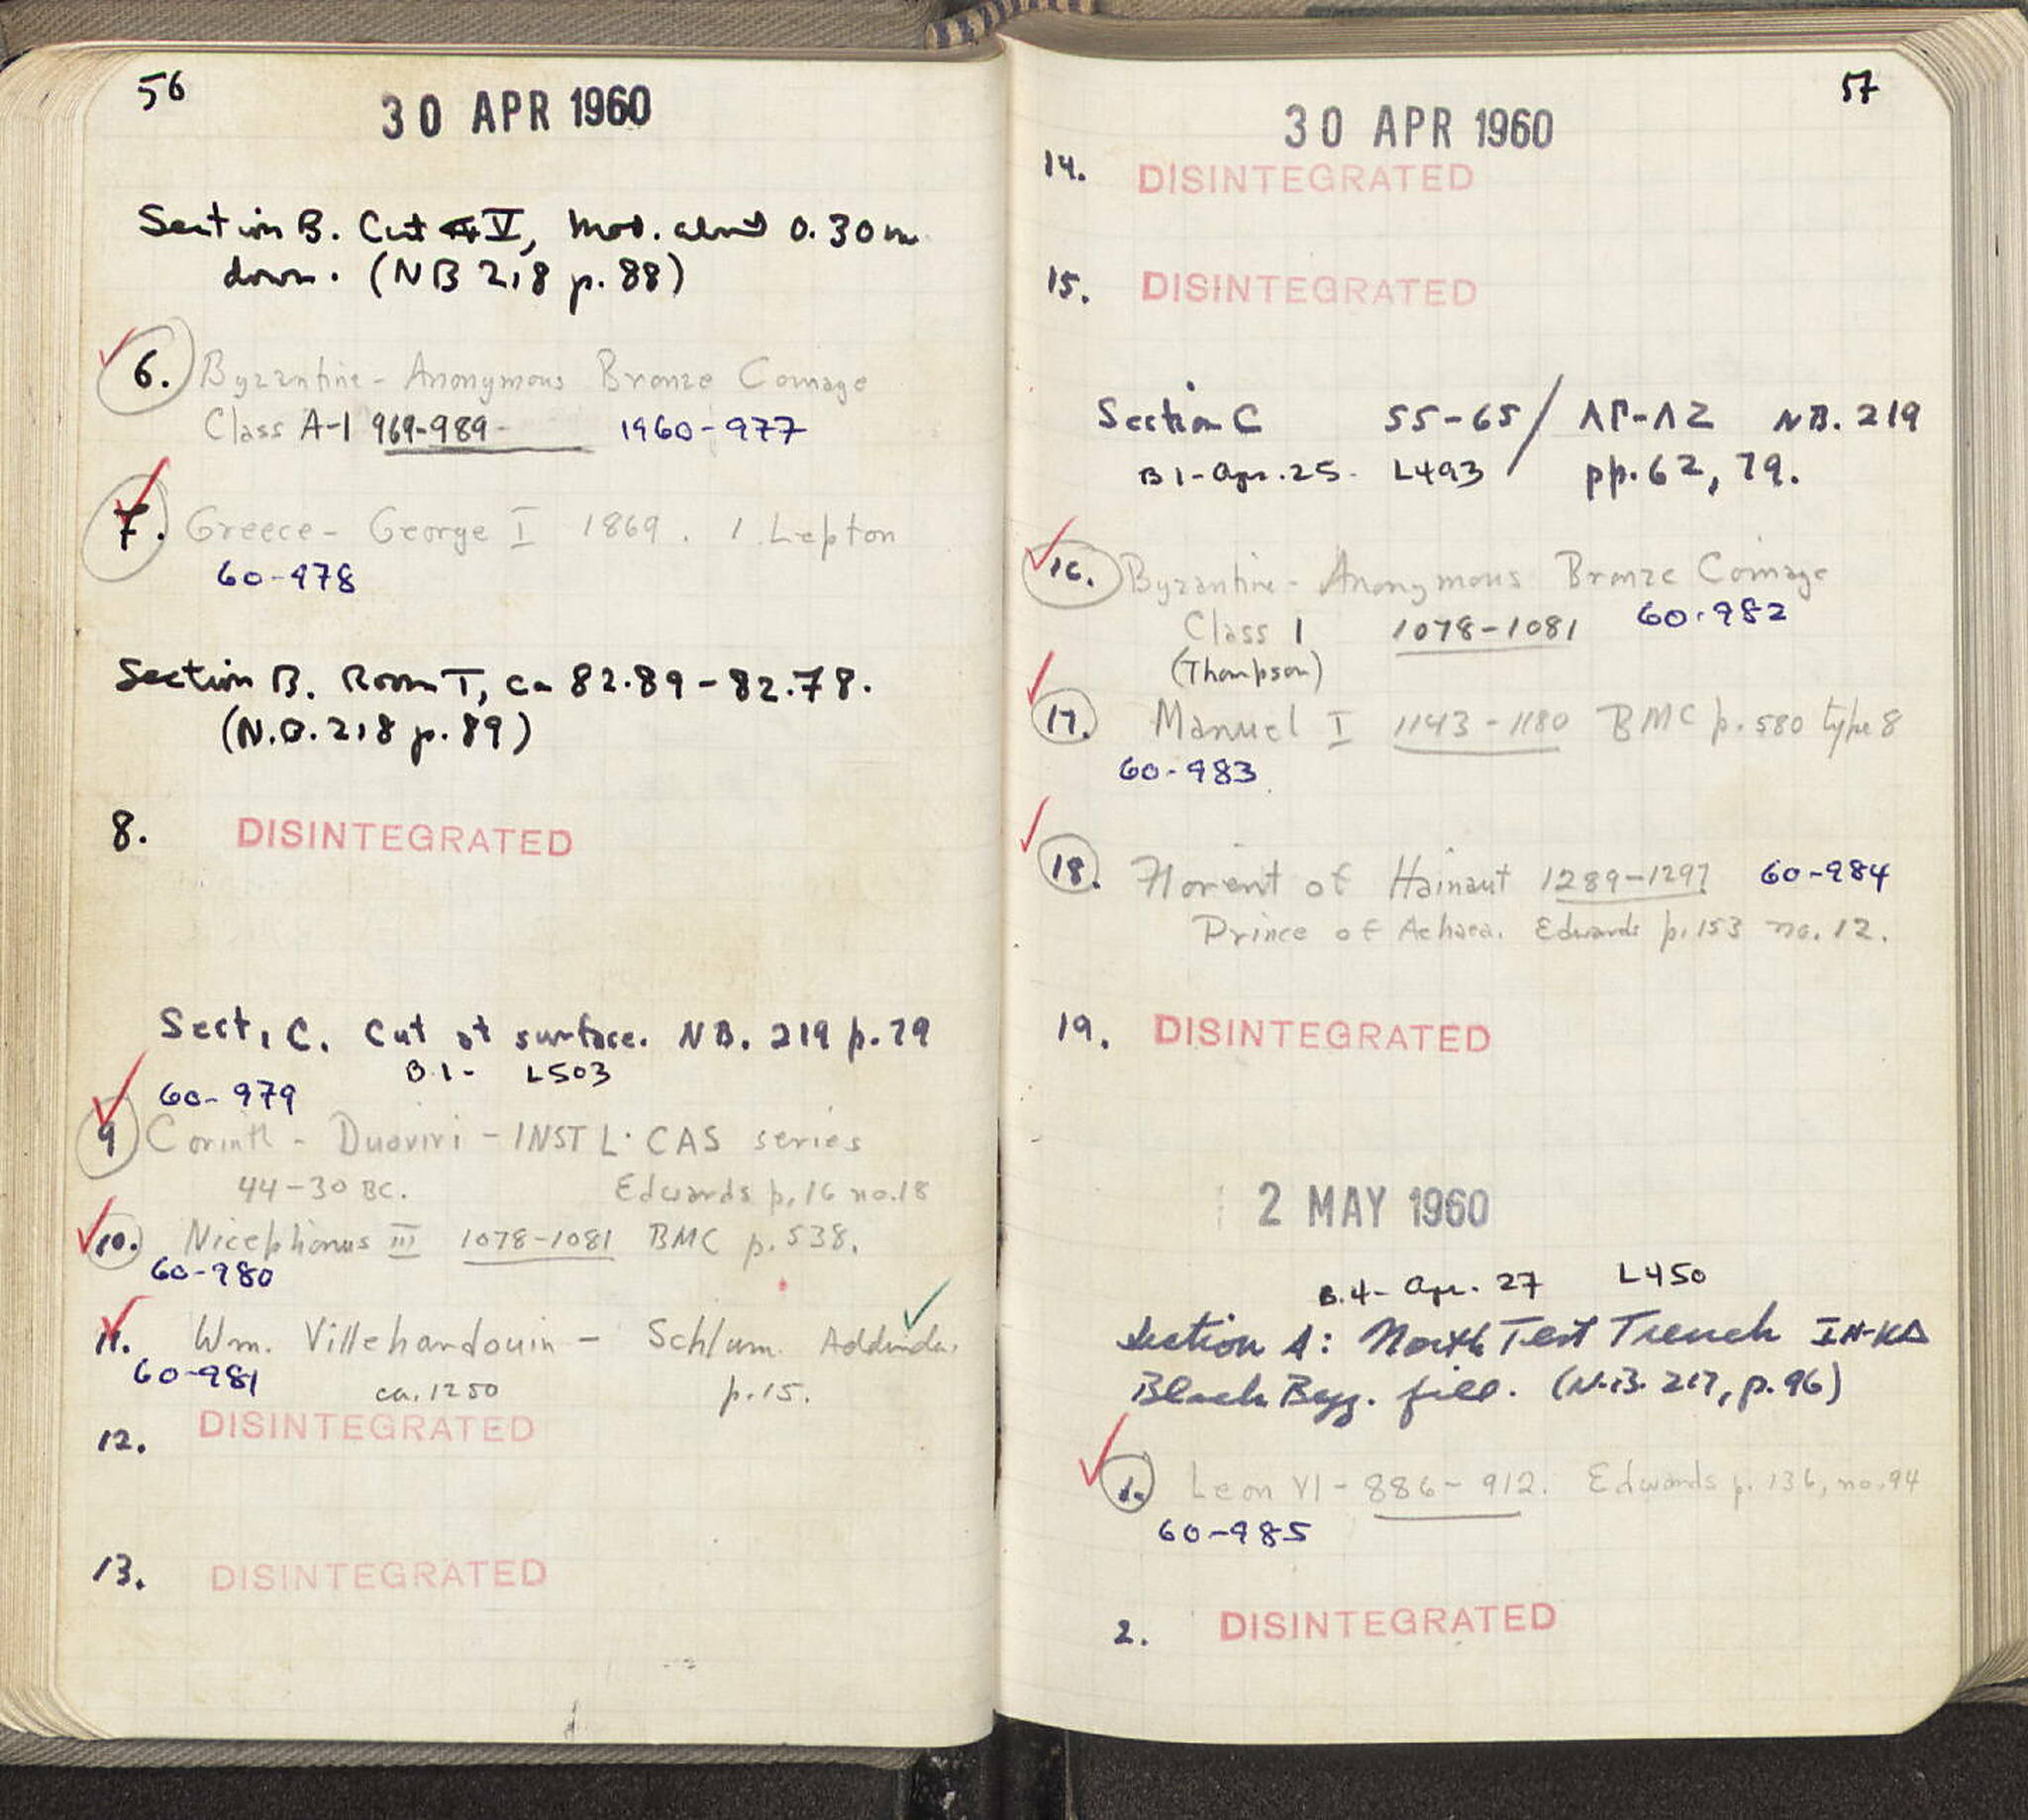 56
30 APR 1960
Section B. Cut V, mod. about 0.30 m
down. (NB 218 p. 88)
6. Byzantine - Anonymous Bronze Coinage
Class A-1 969-989- 1960-977
7. Greece - George I 1869. 1 Lepton
60-978
Section B. Room T, ca 82.89-82.78.
(N.B. 218 p. 89)
8. DISINTEGRATED
Sect. C. Cut at surface. NB. 219 p. 79
B.1- L503
60-979
9 Corinth - Duoviri - INST L. CAS series
44-30 BC. Edwards p. 16 no. 18
10. Nicephorus III 1078-1081 BMC p. 538.
60-980
11. Wm. Villehardouin - Schlum. Addenda.
60-981 ca. 1250 p. 15.
12. DISINTEGRATED
13. DISINTEGRATED
57
30 APR 1960
14. DISINTEGRATED
15. DISINTEGRATED
Section C 55-65/ ΛΓ-ΛΖ NB. 219
B1-Apr. 25- L493 pp. 62, 79.
16. Byzantine - Anonymous Bronze Coinage
Class I 1078-1081 60-982
(Thompson)
17. Manuel I 1143-1180 BMC p. 580 type 8
60-983
18. Florent of Hainaut 1289-1297 60-984
Prince of Achaea. Edwards p. 153 no. 12.
19. DISINTEGRATED
2 MAY 1960
B.4- Apr. 27 L450
Section A: North Test Trench
Black Byz. fill. (N.B. 217, p. 96)
1. Leon VI - 886-912. Edwards p. 136, no. 94
60-985
2. DISINTEGRATED